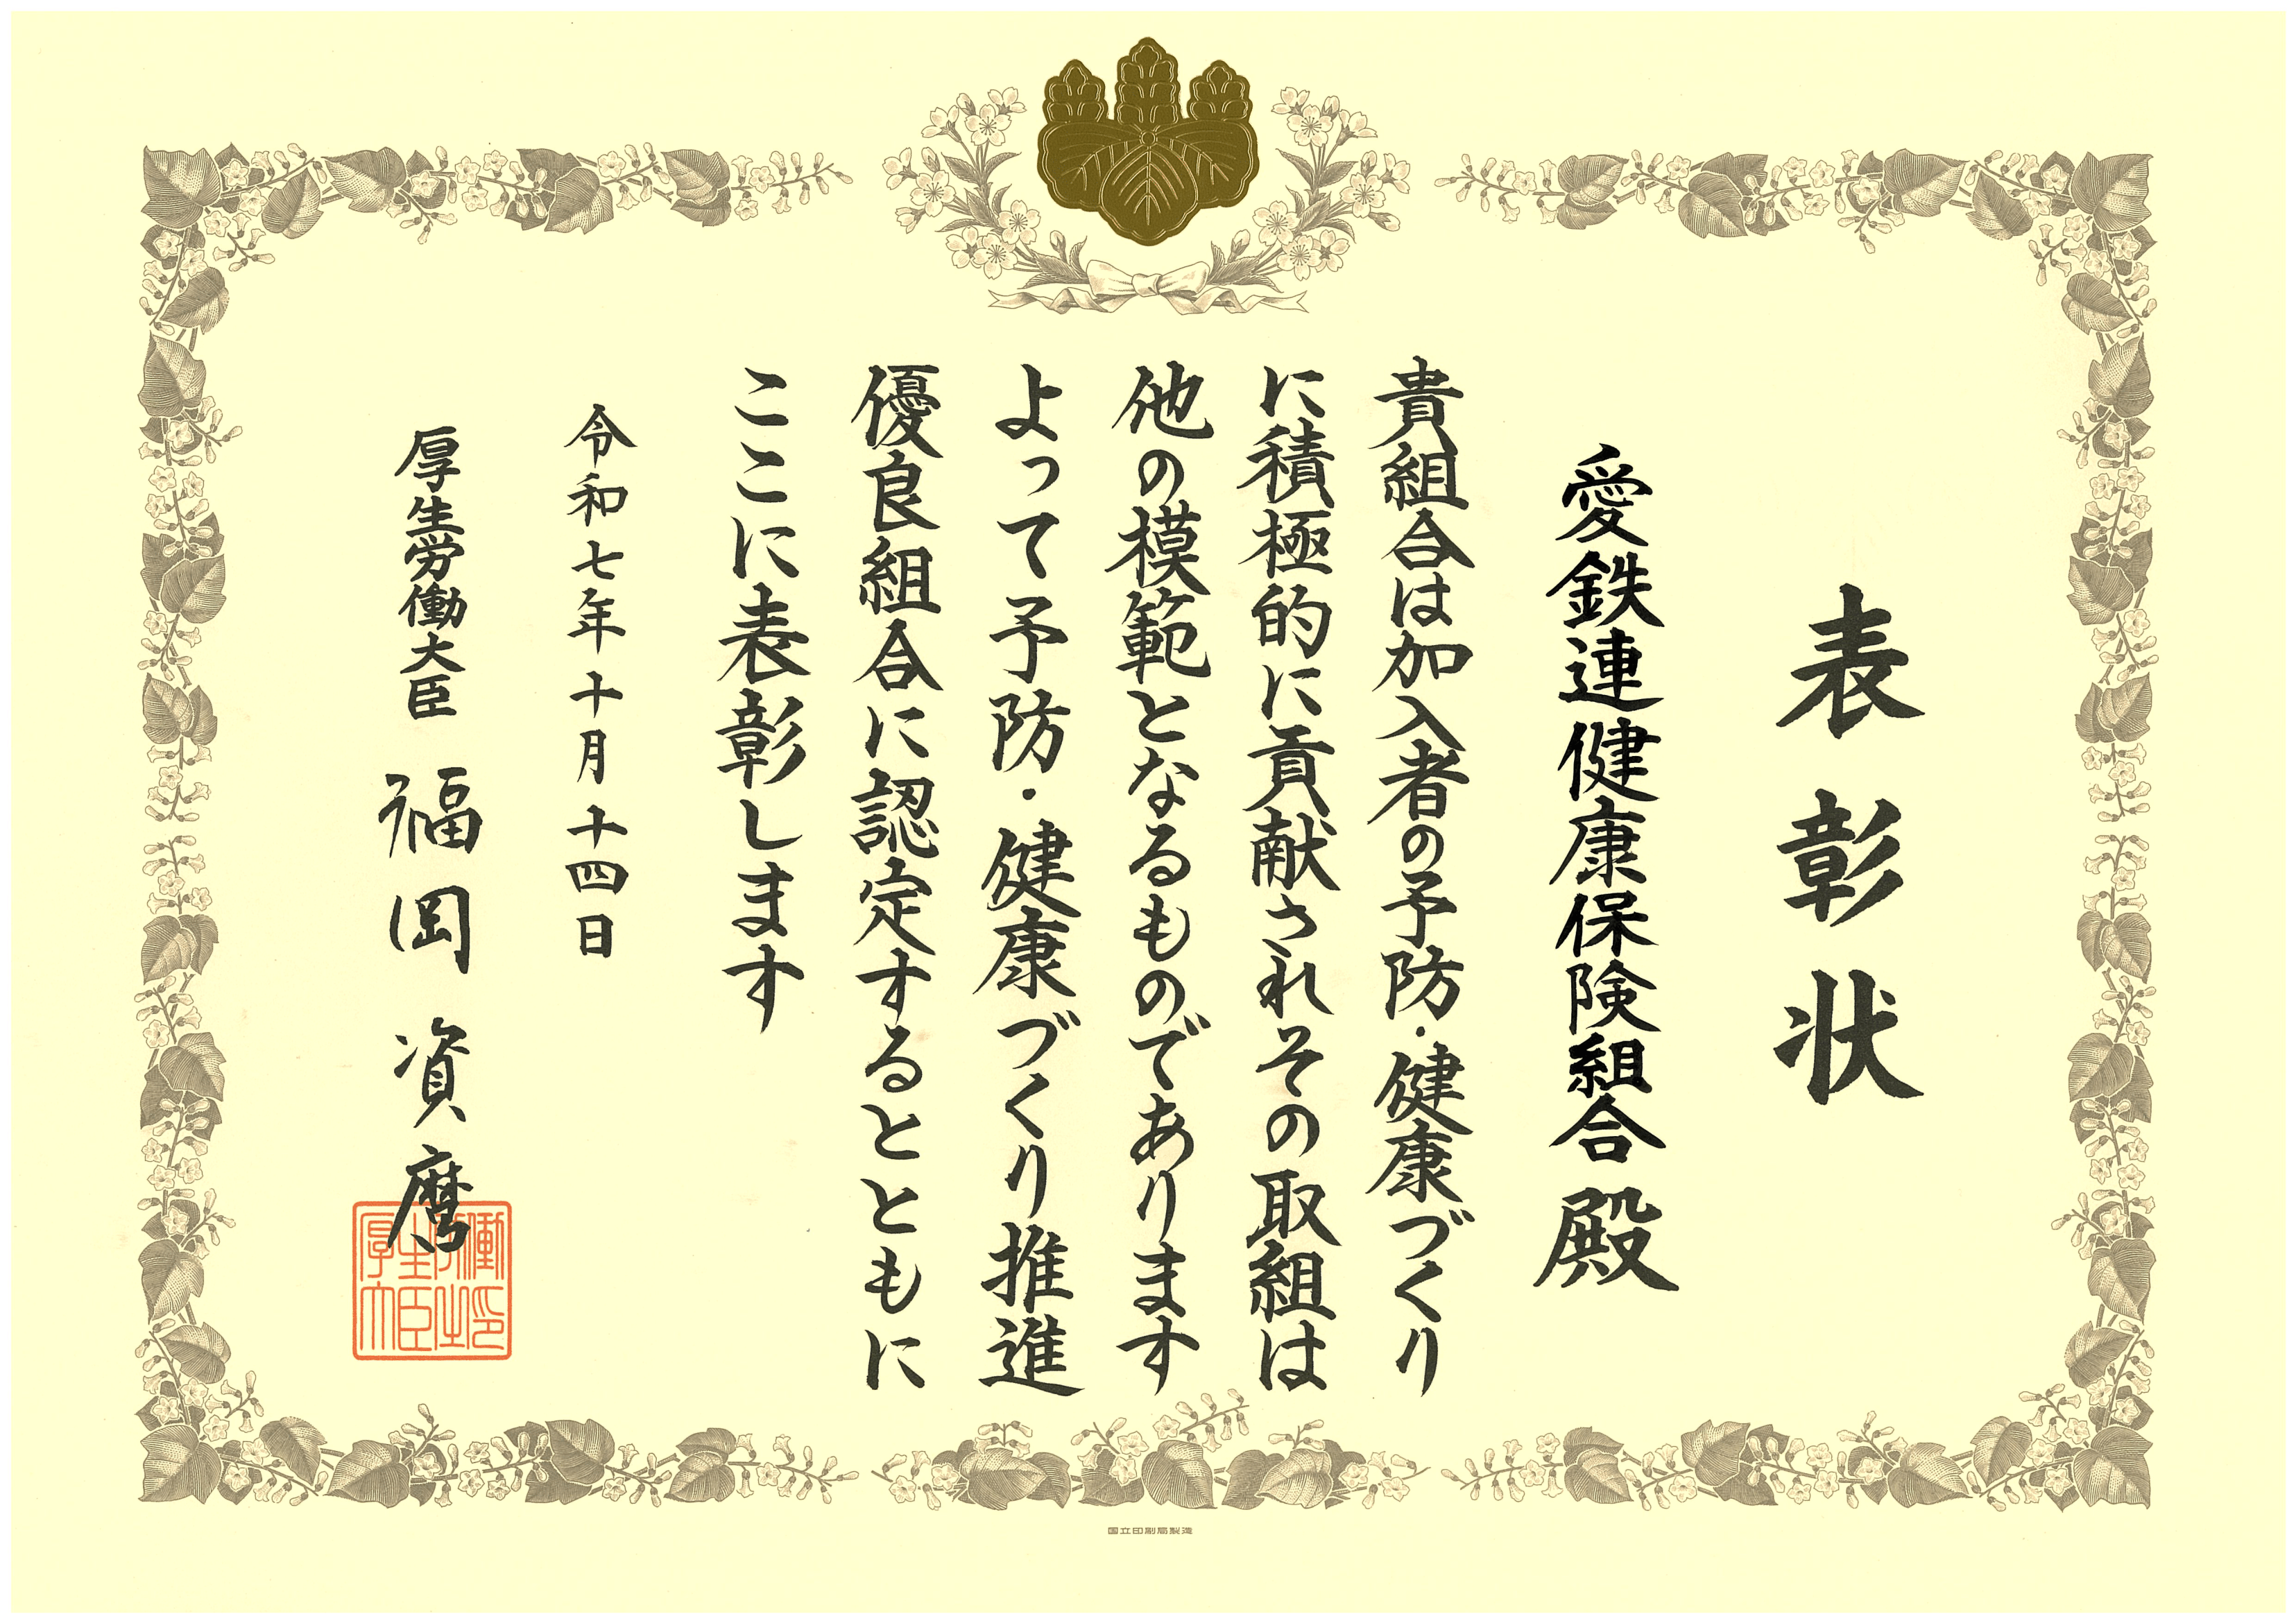 表彰状
愛鉄連健康保険組合殿
貴組合は加入者の予防・健康づくり
に積極的に貢献されその取組は
他の模範となるものであります
よって予防・健康づくり推進
優良組合に認定するとともに
ここに表彰します
令和七年十月十四日
厚生労働大臣 福岡資麿
国立印刷局製造